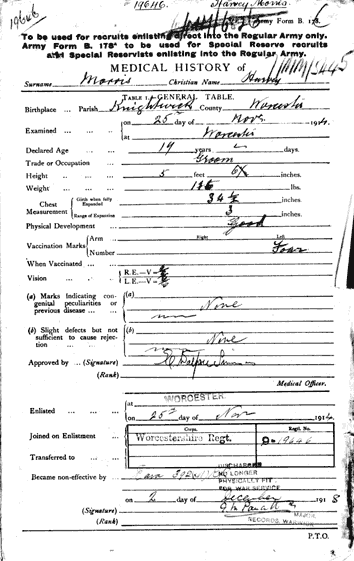 19646 19646. Harvey Morris.
Army Form B. 178.
To be used for recruits enlisting direct into the Regular Army only.
Army Form B. 178A to be used for Special Reserve recruits
and Special Reservists enlisting into the Regular Army.
MEDICAL HISTORY of
Surname Morris Christian Name Harvey
TABLE I.—GENERAL TABLE.
Birthplace ... Parish Knightwick County Worcester
Examined ... on 25th day of Nov. 1914.
at Worcester
Declared Age 19 years — days.
Trade or Occupation ... Groom
Height ... 5 feet 6 inches.
Weight ... lbs.
Chest Measurement Girth when fully Expanded 34½ inches.
Range of Expansion 3 inches.
Physical Development ... Good
Vaccination Marks Arm ... Right Left
Number Four
When Vaccinated ...
Vision ... R.E.—V=
L.E.—V=
(a) Marks indicating congenital peculiarities or previous disease ... (a) None
(b) Slight defects but not sufficient to cause rejection ... (b) None
Approved by ... (Signature)
(Rank)
Medical Officer.
Enlisted ... at WORCESTER
on 25th day of Nov 1914.
Corps. Regtl. No.
Joined on Enlistment ... Worcestershire Regt. 19646
Transferred to ...
Became non-effective by ... DISCHARGED
NO LONGER
PHYSICALLY FIT
FOR WAR SERVICE
on 2 day of December 1918
(Signature)
MAJOR
(Rank) RECORDS, WARWICK
P.T.O.